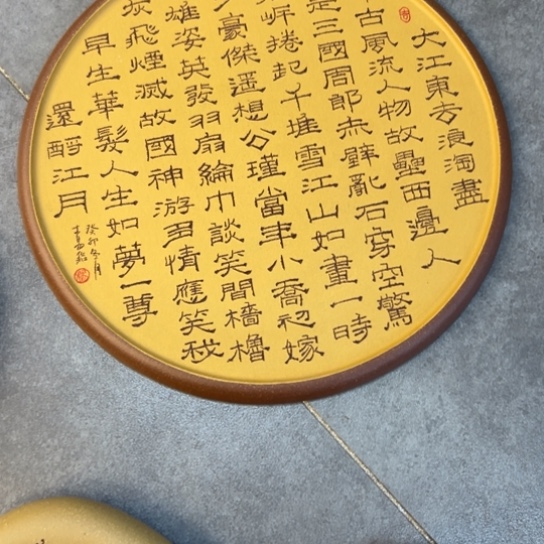 大江東去浪淘盡
古風流人物故壘西邊人
是三國周郎赤壁亂石穿空驚
岸捲起千堆雪江山如畫一時
豪傑遙想公瑾當年小喬初嫁
雄姿英發羽扇綸巾談笑間檣櫓
灰飛煙滅故國神游多情應笑我
早生華髮人生如夢一尊
還酹江月
癸卯冬月